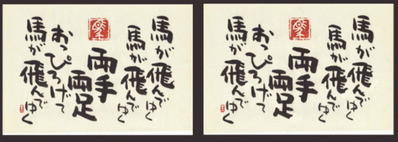 馬が飛んでゆく
馬が飛んでゆく
両手両足
おっぴろげて
馬が飛んでゆく
馬が飛んでゆく
馬が飛んでゆく
両手両足
おっぴろげて
馬が飛んでゆく